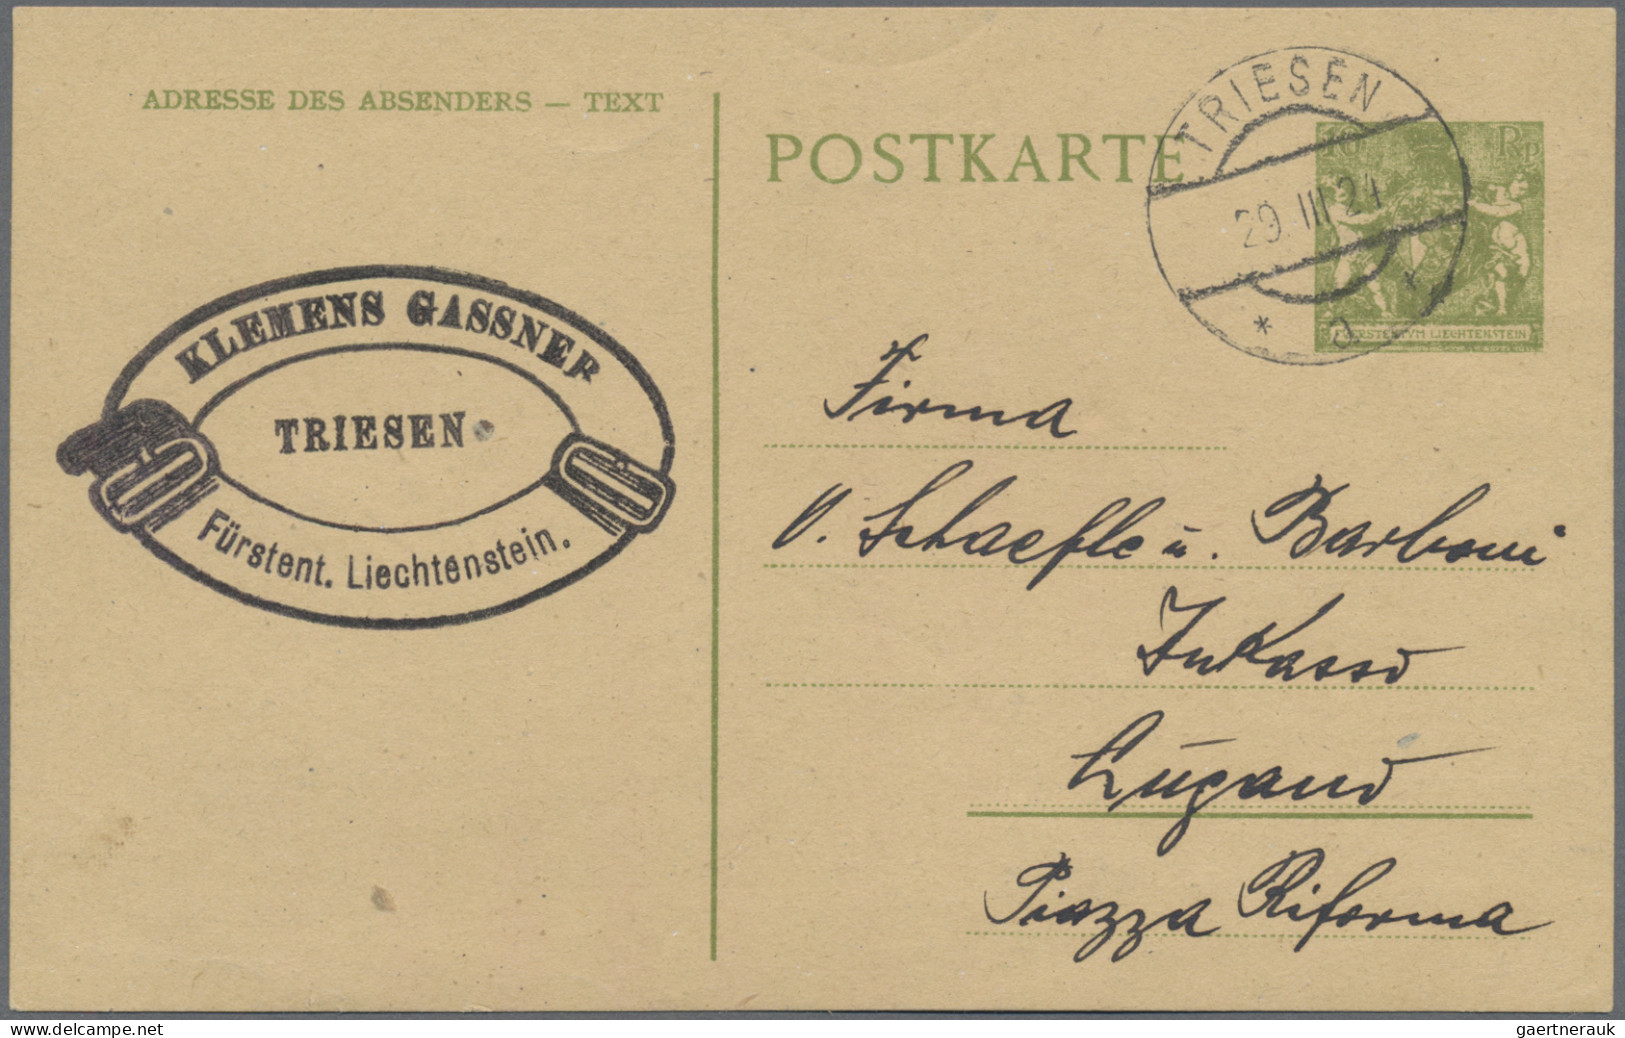 ADRESSE DES ABSENDERS — TEXT
POSTKARTE
TRIESEN
29. III 24
* a *
10 Rp
FÜRSTENTVM LIECHTENSTEIN
KLEMENS GASSNER
TRIESEN
Fürstent. Liechtenstein.
Firma
V. Schaefle u. Barboni
Inkasso
Lugano
Piazza Riforma
www.delcampe.net
gaertnerauk